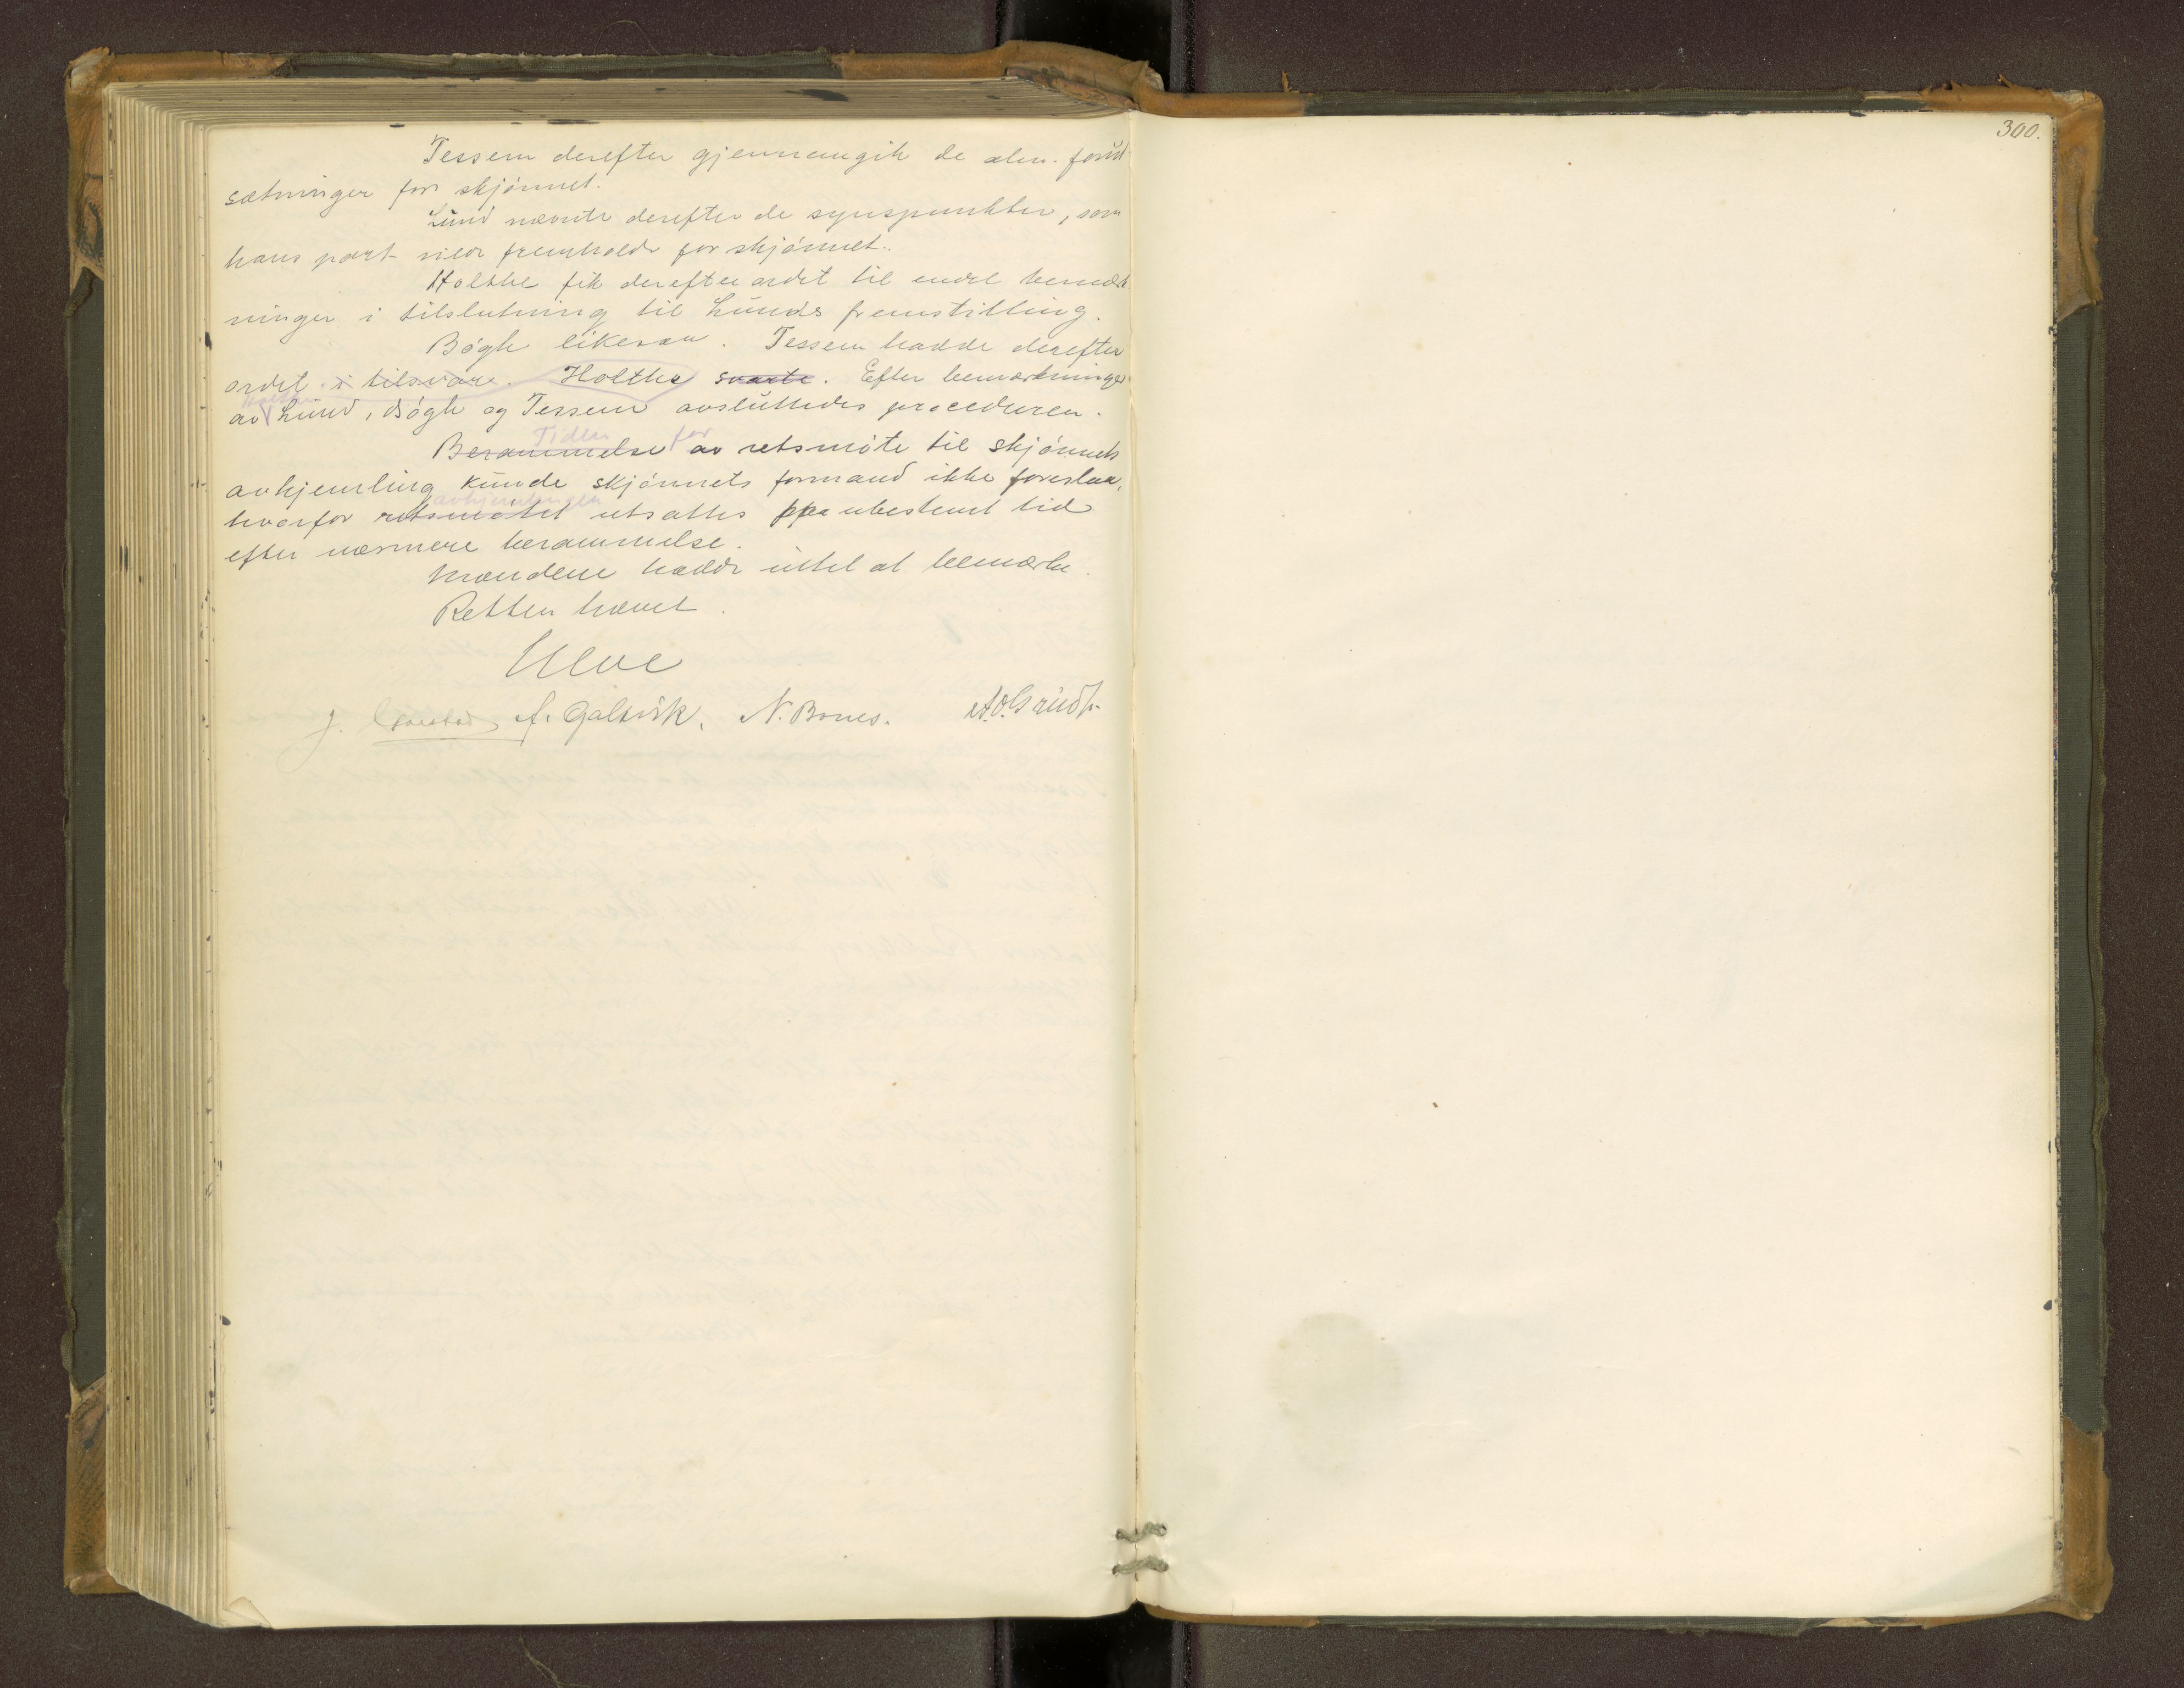 Tessem derefter gjennemgik de alm. forut
sætninger for skjönnet.
Lund nævnte derefter de synspunkter, som
hans part vilde fremholde for skjönnet.
Holthe fik derefter ordet til endel bemærk
ninger i tilslutning til Lunds fremstilling.
Bögh likesaa. Tessem hadde derefter
ordet i tilsvar. Holthe svarte. Efter bemærkninger
Holthe
av Lund, Bögh og Tessem avsluttedes proceduren.
Tiden for
Berammelse av retsmöte til skjönnets
avhjemling kunde skjönnets formand ikke foreslaa,
avhjemlingen
hvorfor retsmötet utsattes paa ubestemt tid
efter nærmere berammelse.
Mændene hadde intet at bemærke.
Retten hævet.
Ulve
J. A. Galtvik. N. Bones. A.O. Grudt
300.